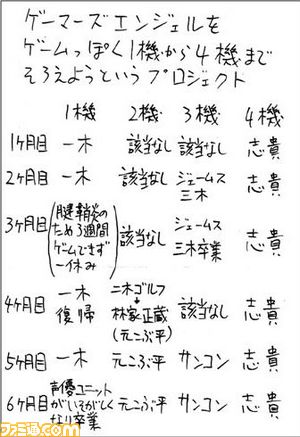 ゲーマーズエンジェルを
ゲームっぽく1機から4機まで
そろえようというプロジェクト
1機 2機 3機 4機
1ヶ月目 一木 該当なし 該当なし 志貴
2ヶ月目 一木 該当なし ジェームス三木 志貴
3ヶ月目 (腱鞘炎のため3週間ゲームできず一休み) 該当なし ジェームス三木卒業 志貴
4ヶ月目 一木復帰 二木ゴルフ↓林家正蔵(元こぶ平) 志貴
5ヶ月目 一木 元こぶ平 サンコン 志貴
6ヶ月目 声優ユニットがいそがしくなり卒業 元こぶ平 サンコン 志貴
ファミ通.com